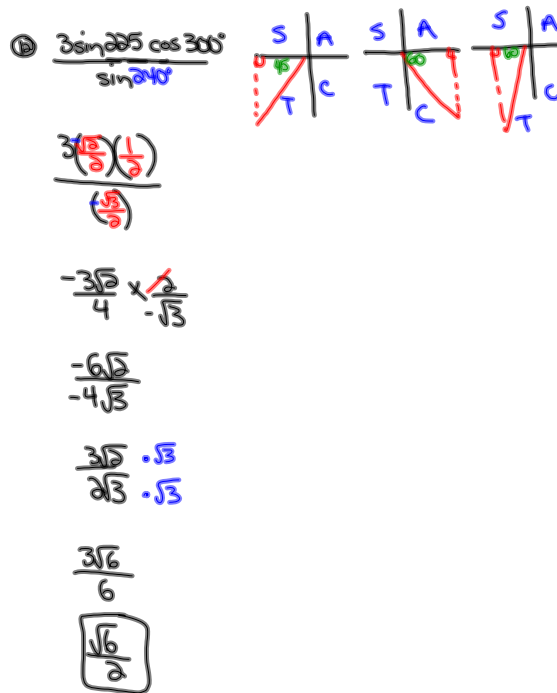 b) 3sin225 cos300° / sin240°
S A
45
T C
S A
60
T C
S A
60
T C
3(-√2/2)(1/2) / (-√3/2)
-3√2/4 × 2/-√3
-6√2 / -4√3
3√2/2√3 · √3 / · √3
3√6/6
√6/2